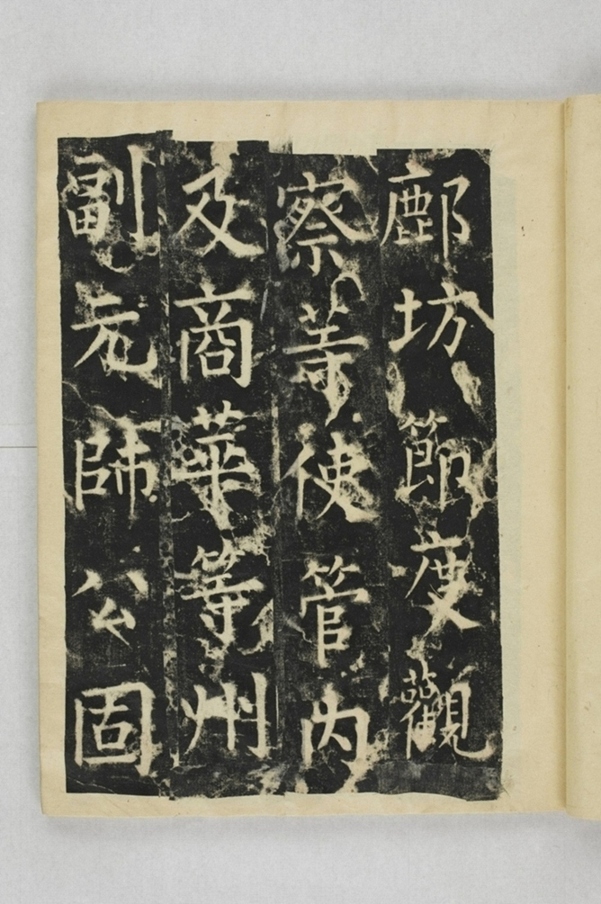 鄜坊節度觀
察等使管内
及商華等州
副元帥公固